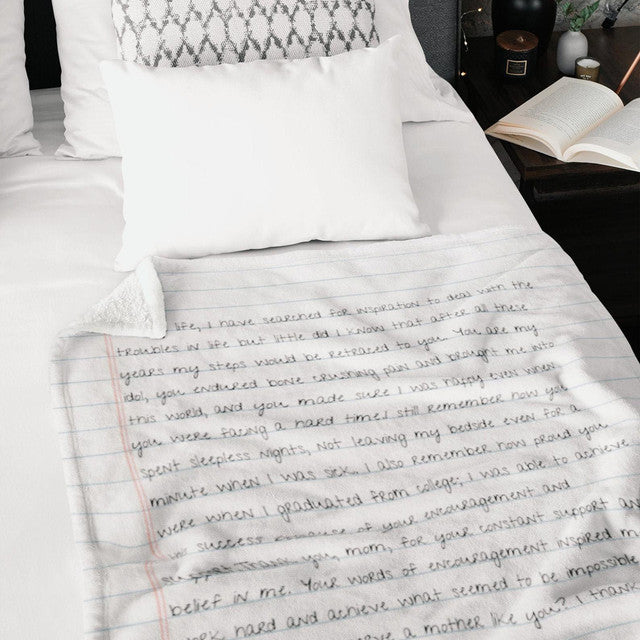 life, I have searched for inspiration to deal with the
trouble in life but little did I know that after all these
years my steps would be retraced to you. You are my
idol, you endured bone crushing pain and brought me into
this world, and you made sure I was happy even when
you were facing a hard time! I still remember how you
spent sleepless nights, not leaving my bedside even for a
minute when I was sick. I also remember how proud you
were when I graduated from college; I was able to achieve
success because of your encouragement and
you, mom, for your constant support and
belief in me. Your words of encouragement inspired me
hard and achieve what seemed to be impossible
a mother like you? I thank